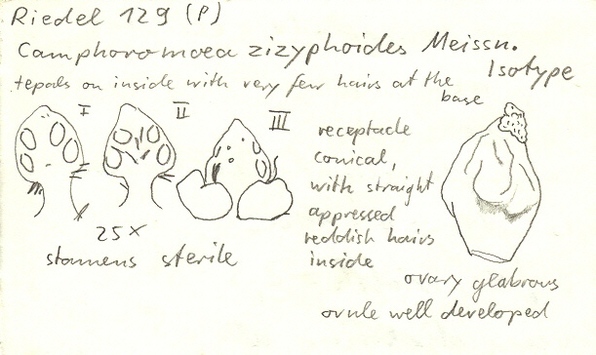 Riedel 129 (P)
Camphoromoea zizyphoides Meissn.
Isotype
tepals on inside with very few hairs at the
base
I
II
III
25 x
stamens sterile
receptacle
conical,
with straight
appressed
reddish hairs
inside
ovary glabrous
ovule well developed